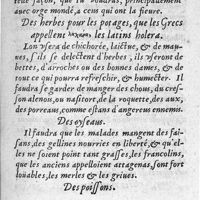 telle façon, que tu voudras, principalement
auec orge mondé, a ceux qui ont la fieure.
Des herbes pour les potages, que les Grecs
appellent λάχανα, les latins holera.
Lon vsera de chichorée, laictue, & de mau-
ues, s'ils se delectent d'herbes, ils vseront de
bette, d'arroches ou des bonnes dames, & de
tout ce qui pourra refreschir, & humecter. Il
faudra se garder de manger des chous, du cres-
son jalenois, ou nasitort, de la roquette, des aux,
des porreaux, comme estans d'angereux ennemis.
Des oyseaux.
Il faudra que les malades mangent des fai-
sans, des gellines nourries en liberté, & qu'el-
les ne soient point tant grasses, les francolins,
que les anciens appelloient attagenas, sont fort
loüables, les merles & les griues.
Des poissons.